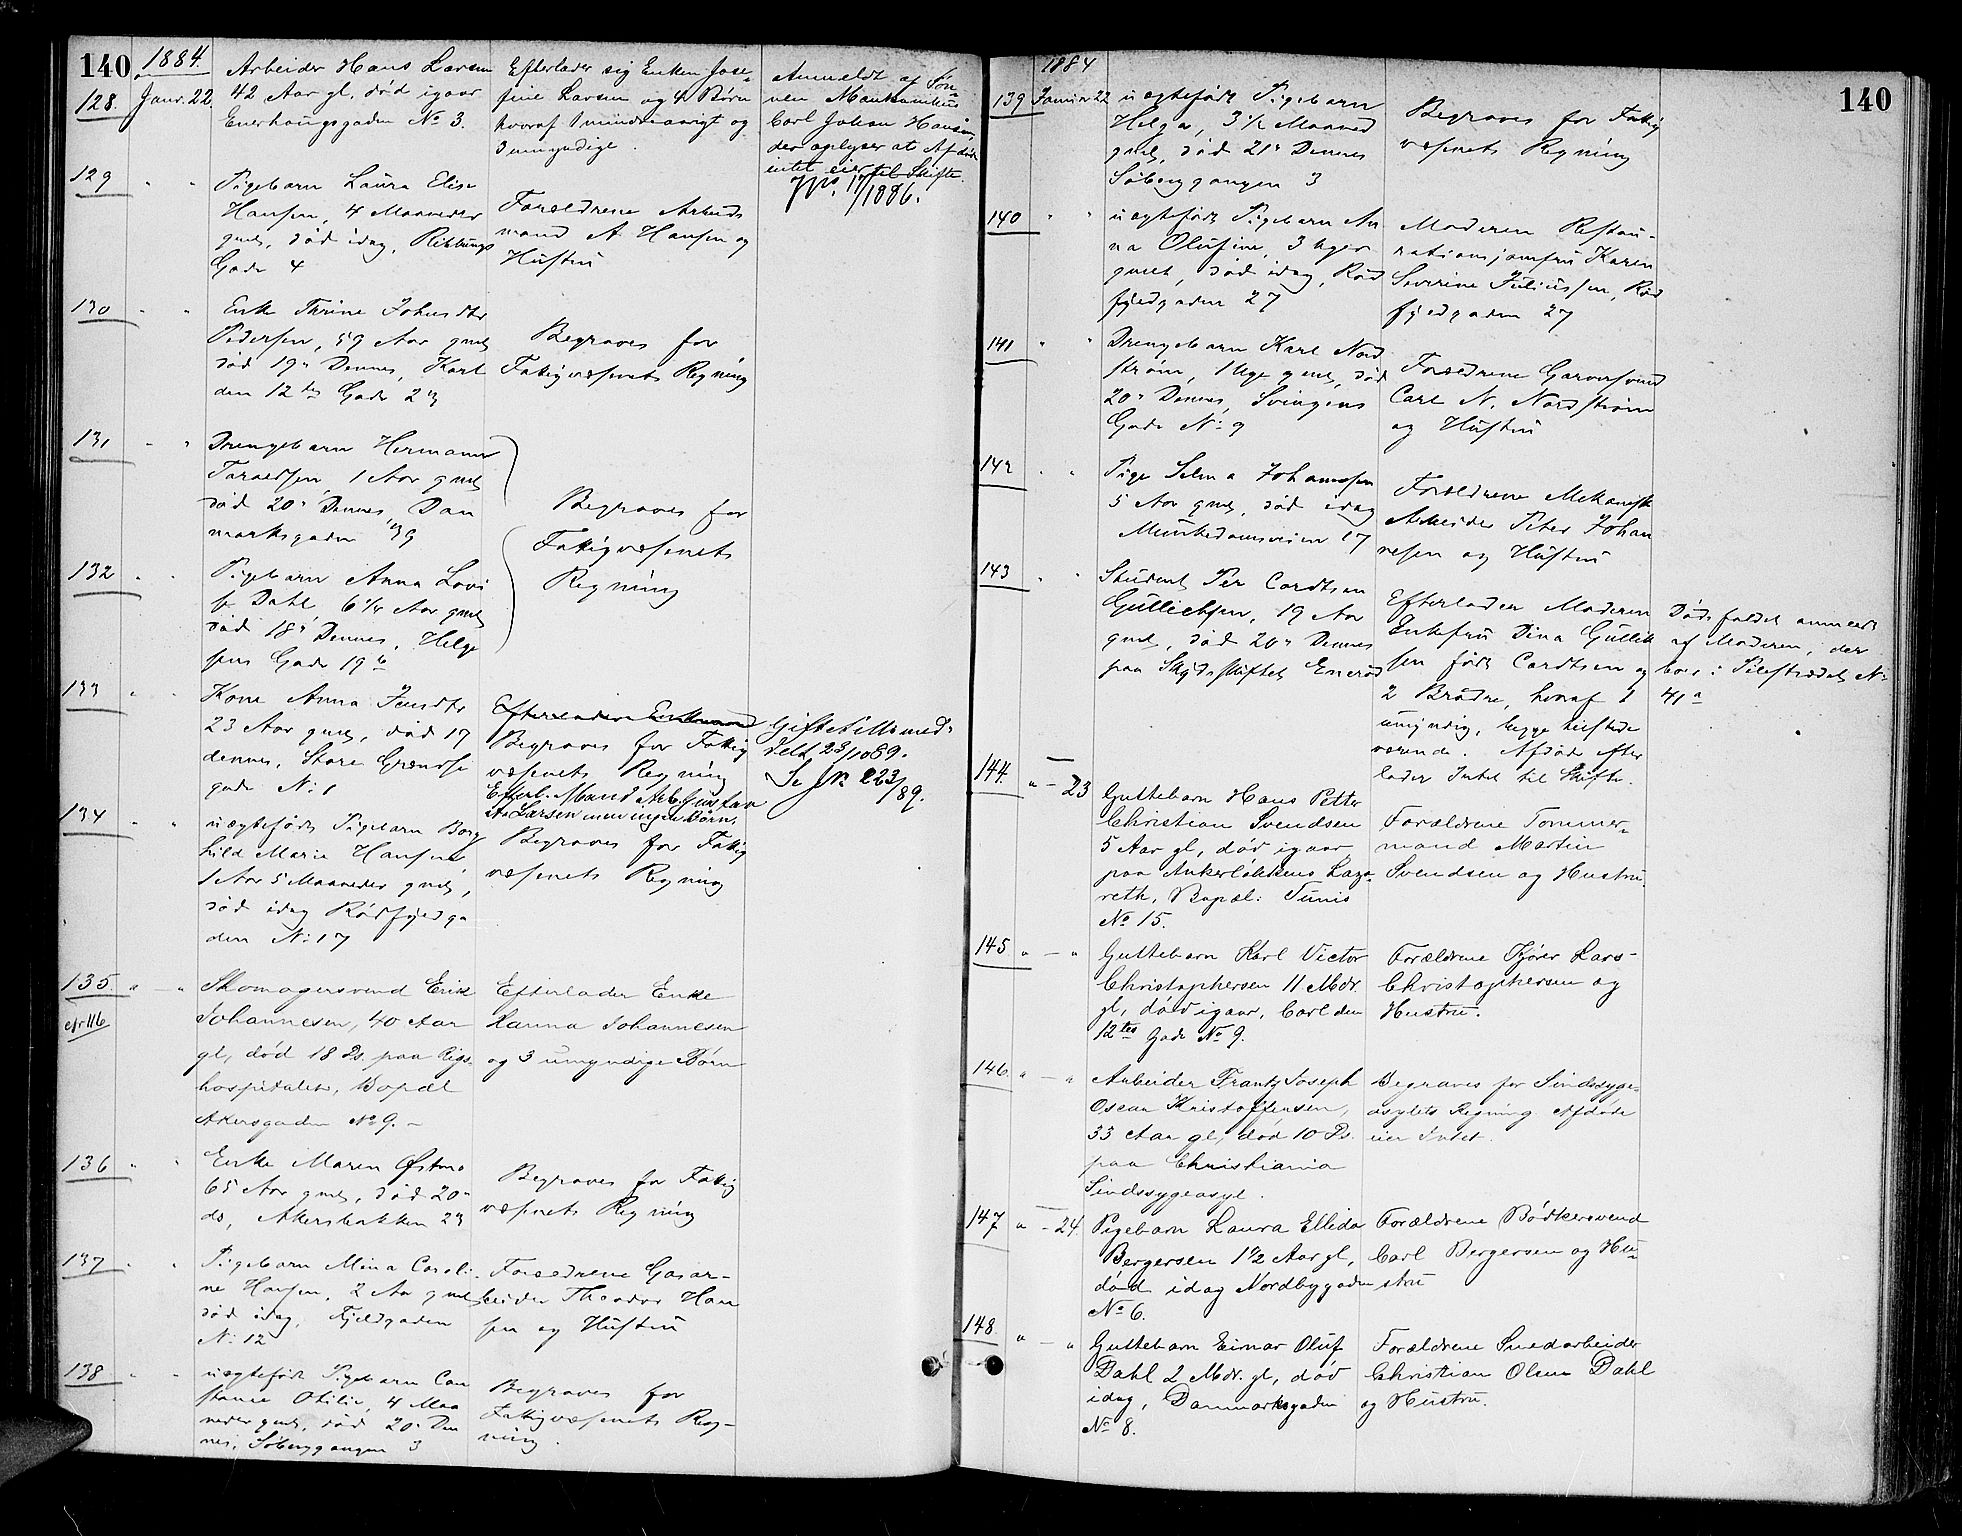 140
1884.
128. Janr. 22
Arbeider Hans Larsen
42 Aar gl, død igaar
Enerhaugsgaden No 3.
Efterlader sig Enken Jose-
fine Larsen og 4 Børn
hvoraf 1 mindreaarigt og
3 umyndige.
Anmeldt af Søn-
nen
Carl Johan Hansen,
der oplyser at Afdøde
intet eier til Skifte.
1886.
129 " "
Pigebarn Laura Elise
Hansen, 4 Maaneder
gml, død idag, Ribbungs
Gade 4
Forældrene Arbeids
mand A. Hansen og
Hustru
130 " "
Enke Thrine Johnsdtr
Pedersen, 59 Aar gml
død 19de Dennes, Karl
den 12tes Gade 23
Begraves for
Fattigvæsenets Regning
131 " "
Drengebarn Hermann
Taraldsen, 1 Aar gml
død 20de Dennes, Dan
marksgaden 39
132 " "
Pigebarn Anna Lovi
se Dahl 6 1/2 Aar gml
død 18de Dennes, Helge
sens Gade 19b
Begraves for
Fattigvæsenets
Regning
133 " "
Kone Anna Jensdtr
23 Aar gml, død 17
dennes, Store Grændse
gade No 1
Efterlader Enkemand
Begraves for Fattig
væsenets Regning
Efterl. Mand Arb. Gustav
A. Larsen men ingen Børn.
Skiftet
Se JNo 223/89.
134 " "
uægtefødt Pigebarn Borg
hild Marie Hansen
1 Aar 5 Maaneder gml,
død idag Rødfyldga
den No 17
Begraves for Fattig
væsenets Regning
135. " — "
cfr 116
Skomagersvend Erik
Johannesen, 40 Aar
gl, død 18 Ds. paa Rigs-
hospitalet, Bopæl
Akersgaden No 9. -
Efterlader Enke
Hanna Johannesen
og 3 umyndige Børn
136 " "
Enke Maren Østmo
65 Aar gml, død 20de
ds, Akersbakken 23
Begraves for Fattig
væsenets Regning
137 " "
Pigebarn Mina Caroli-
ne Hansen, 2 Aar gml
død idag, Fjeldgaden
No 12
Forældrene Gasar-
beider Theodor Han
sen og Hustru
138 " "
uægtefødt Pigebarn Con
stance Otilie, 4 Maa
neder gml, død 20de Den
nes, Søberggangen 3
Begraves for
Fattigvæsenets Reg-
ning.
140
1884
139 Januar 22
uægtefødt Pigebarn
Helga, 3 1/2 Maaned
gml, død 21de Dennes
Søberggangen 3
Begraves for Fattig
væsenets Regning
140 " "
uægtefødt Pigebarn An
na Olufine, 3 Uger
gml, død idag, Rød
fyldgaden 27
Moderen Restau-
rationsjomfru Karen
Severine Juliussen, Rød
fyldgaden 27
141 " "
Drengebarn Karl Nord
strøm, 1 Uge gml, død
20de Dennes, Svingens
Gade No 9
Forældrene Garversvend
Carl N. Nordstrøm
og Hustru
142 " "
Pige Selma Johannesen
5 Aar gml, død idag
Munkedamsveien 17
Forældrene Mekanisk
Arbeider Peter Johan
nesen og Hustru
143 " "
Student Per Cordtsen
Gullichsen, 19 Aar
gml, død 20de Dennes
paa Skydsskiftet Enerød
Efterlader Moderen
Enkefru Dina Gullik
sen født Cordtsen og
2 Brødre, hvoraf 1
umyndig, begge tilstede
værende. Afdøde efter
lader Intet til Skifte.
Dødsfaldet anmeldt
af Moderen, der
bor i Pilestrædet No
41a
144. " — 23
Guttebarn Hans Petter
Christian Svendsen
5 Aar gl, død igaar
paa Ankerløkkens Laza-
reth, Bopæl: Tunis
No 15.
Forældrene Tømmer-
mand Martin
Svendsen og Hustru.
145 " — "
Guttebarn Karl Victor
Christophersen 11 Mdr.
gl, død igaar, Carl den
12tes Gade No 9.
Forældrene Kjører Lars
Christophersen og
Hustru.
146. " — "
Arbeider Frantz Joseph
Oscar Kristoffersen,
33 Aar gl, død 10 Ds.
paa Christiania
Sindssygeasyl.
Begraves for Sindssyge-
asylets Regning Afdøde
eier Intet.
147 " — 24.
Pigebarn Laura Ellida
Bergersen 1 1/2 Aar gl,
død idag Nordbygaden
No 6.
Forældrene Bødkersvend
Carl Bergersen og Hu-
stru
148. " — "
Guttebarn Einar Oluf
Dahl 2 Mdr. gl, død
idag, Danmarksgaden
No 8.
Forældrene Smedarbeider
Christian Olsen Dahl
og Hustru.